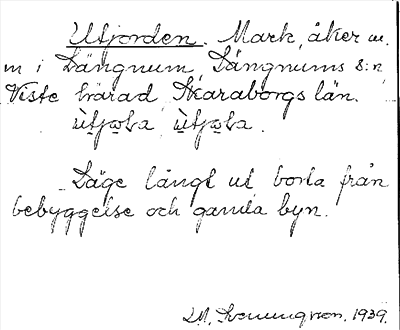 Utjorden. Mark, åker m.
m i Längnum, Längnums s:n
Viste härad, Skaraborgs län.
Läge långt ut, borta från
bebyggelse och gamla byn.
1939.